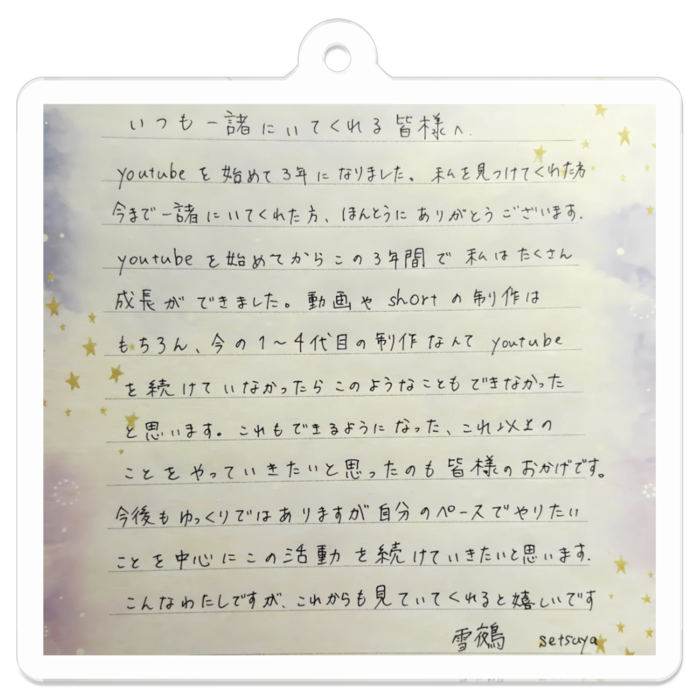 いつも一諸にいてくれる皆様へ.
youtubeを始めて3年になりました。私を見つけてくれた方
今まで一諸にいてくれた方、ほんとうにありがとうございます.
youtubeを始めてからこの3年間で私はたくさん
成長ができました。動画やshortの制作は
もちろん、今の1〜4代目の制作なんてyoutube
を続けていなかったらこのようなこともできなかった
と思います。これもできるようになった、これ以上の
ことをやっていきたいと思ったのも皆様のおかげです。
今後もゆっくりではありますが自分のペースでやりたい
ことを中心にこの活動を続けていきたいと思います.
こんなわたしですが、これからも見ていてくれると嬉しいです
雪鵺 setsuya